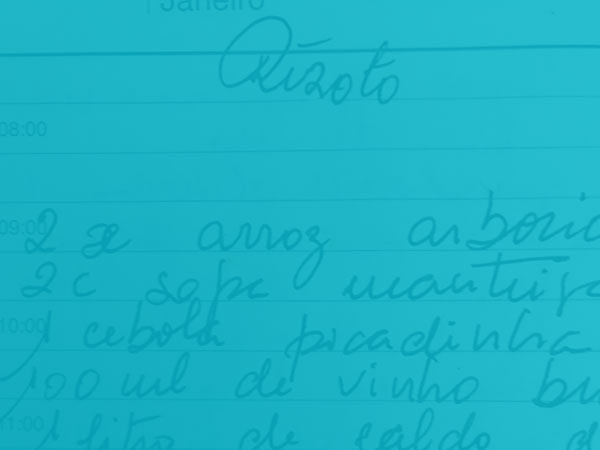 Janeiro
Rizoto
08:00
09:00 2 x arroz arboric
2 c sopa manteiga
10:00 1 cebola picadinha
100 ml de vinho
11:00 1 litro de caldo d